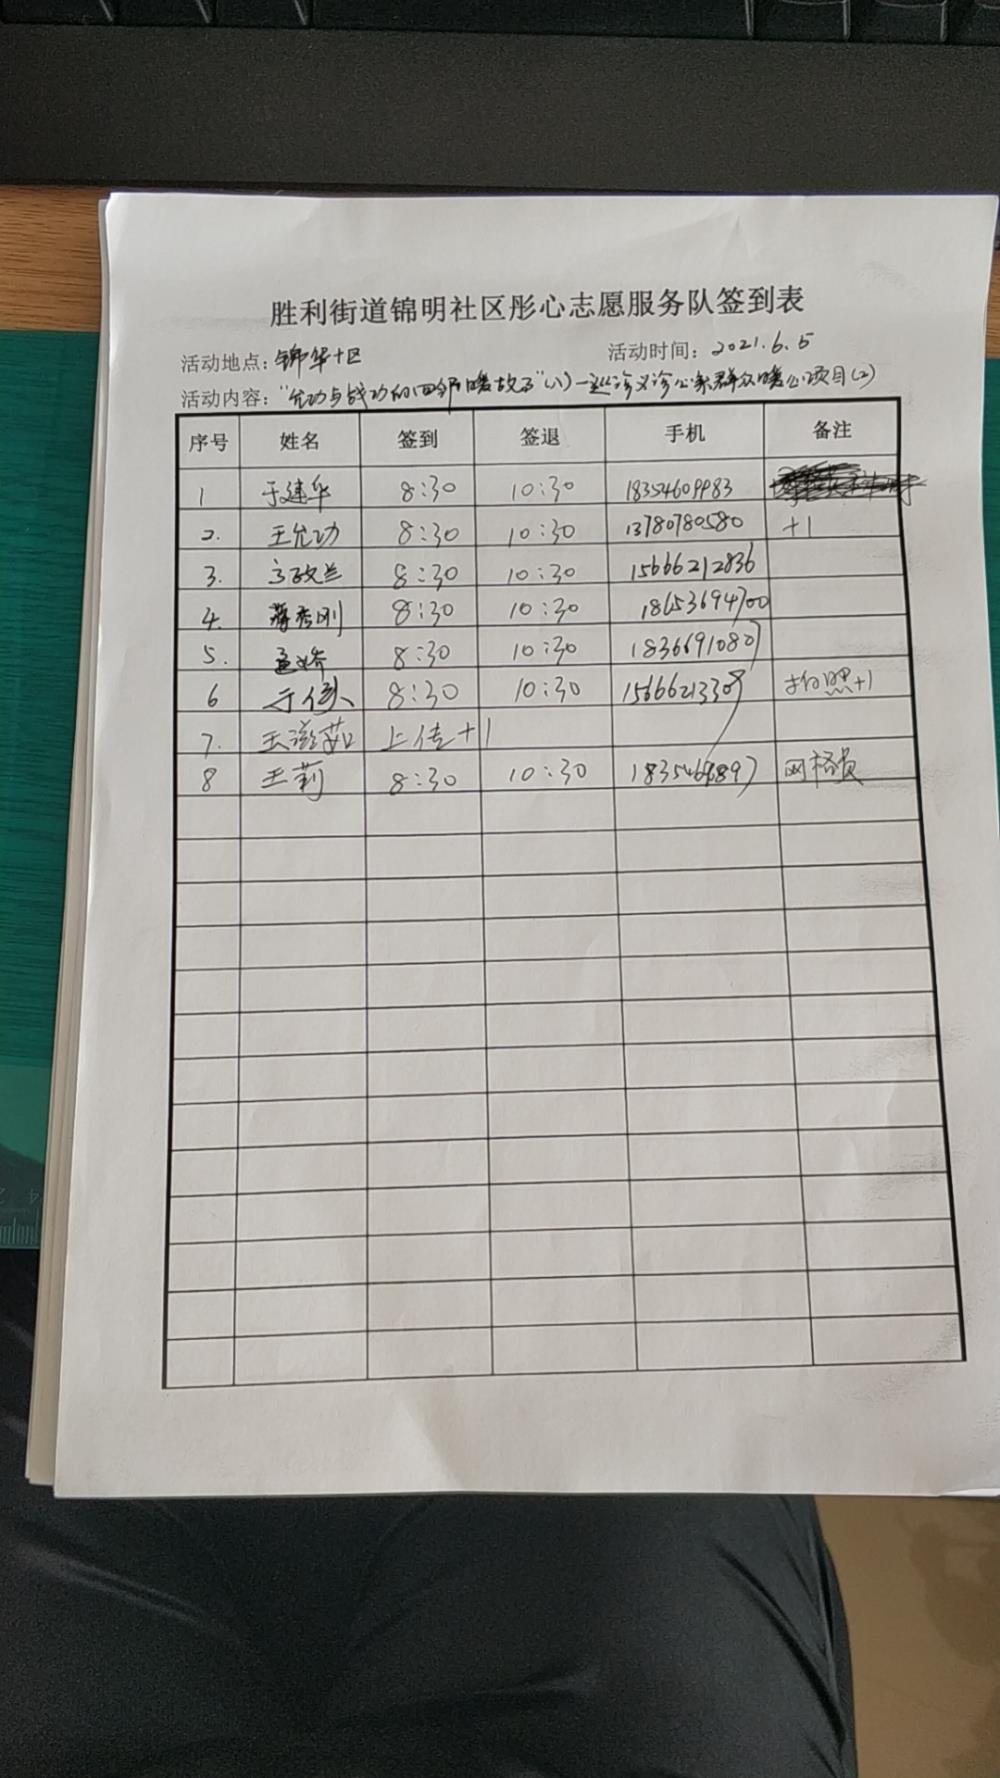 胜利街道锦明社区彤心志愿服务队签到表
活动地点：锦华十区 活动时间：2021.6.5
活动内容："允功与战功的四邻暖故事"(八)一巡诊义诊公益群众暖心项目(2)
序号 姓名 签到 签退 手机 备注
1 于建华 8:30 10:30 18354609983
2. 王允功 8:30 10:30 13780780580 +1
3. 8:30 10:30 15666212836
4. 蒋秀刚 8:30 10:30 18653694700
5. 孟娇 8:30 10:30 18366910807
6 8:30 10:30 15666213309 拍照+1
7. 王滋茹 上传+1
8 王莉 8:30 10:30 网格员